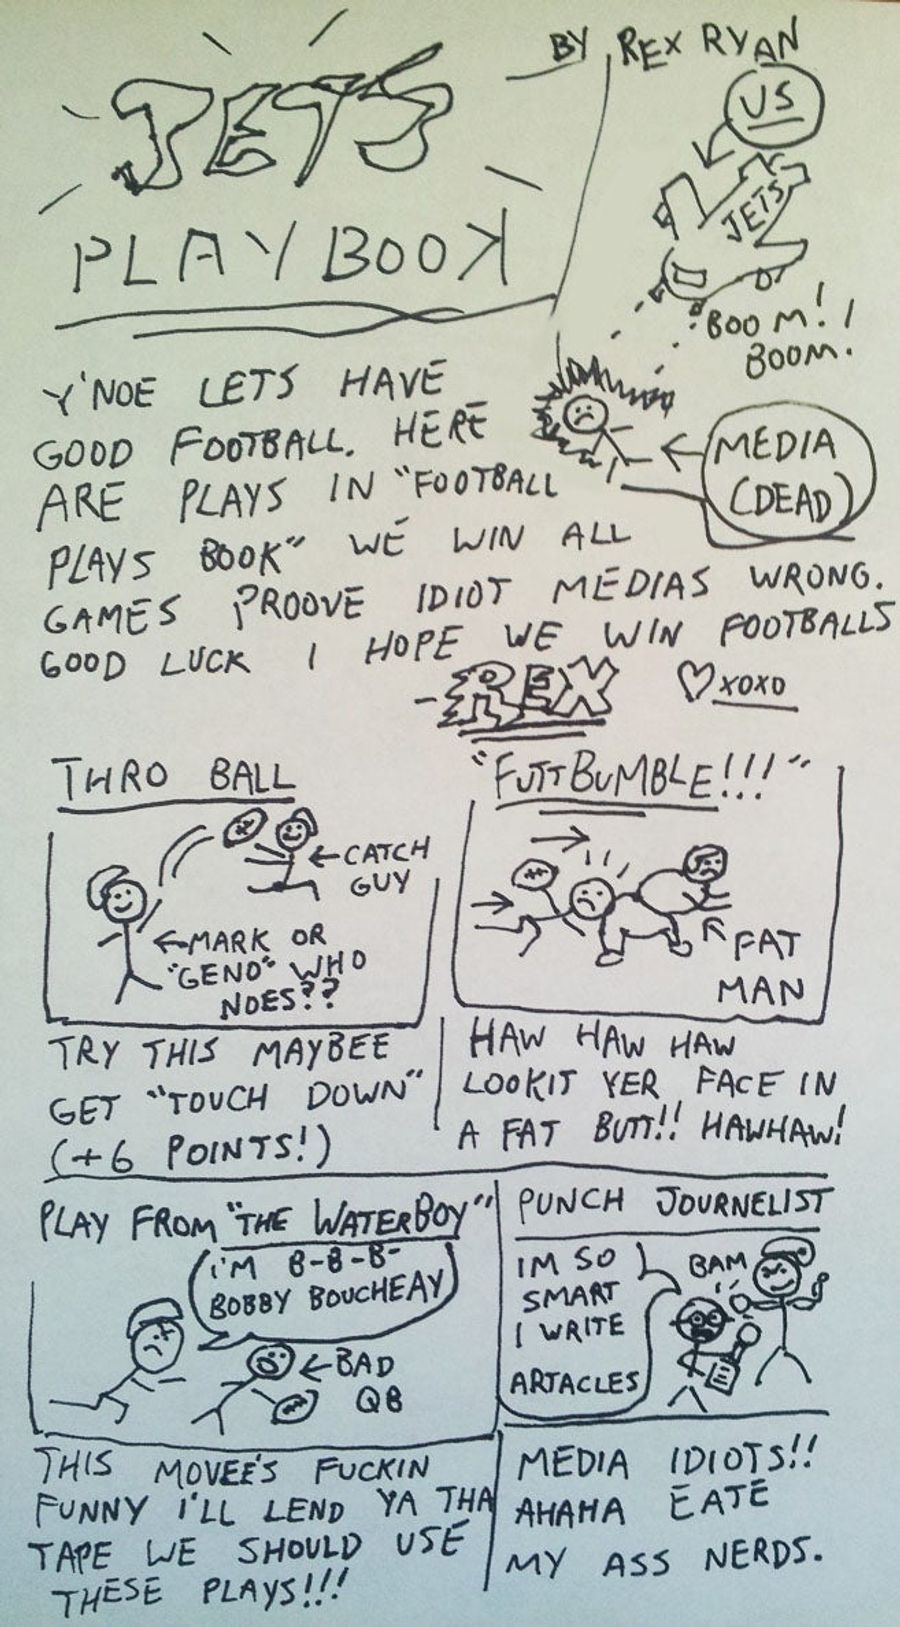 JETS
PLAYBOOK
BY REX RYAN
US
JETS
BOOM!!
BOOM.
MEDIA
(DEAD)
Y'NOE LETS HAVE
GOOD FOOTBALL. HERE
ARE PLAYS IN "FOOTBALL
PLAYS BOOK" WE WIN ALL
GAMES PROOVE IDIOT MEDIAS WRONG.
GOOD LUCK I HOPE WE WIN FOOTBALLS
-REX ♡XOXO
THRO BALL
←CATCH
GUY
←MARK OR
"GENO" WHO
NOES??
TRY THIS MAYBEE
GET "TOUCH DOWN"
(+6 POINTS!)
"FUTTBUMBLE!!!"
FAT
MAN
HAW HAW HAW
LOOKIT YER FACE IN
A FAT BUTT!! HAWHAW!
PLAY FROM "THE WATERBOY"
I'M B-B-B-
BOBBY BOUCHEAY
←BAD
QB
THIS MOVEE'S FUCKIN
FUNNY I'LL LEND YA THA
TAPE WE SHOULD USE
THESE PLAYS!!!
PUNCH JOURNELIST
IM SO
SMART
I WRITE
ARTACLES
BAM
MEDIA IDIOTS!!
AHAHA EATE
MY ASS NERDS.